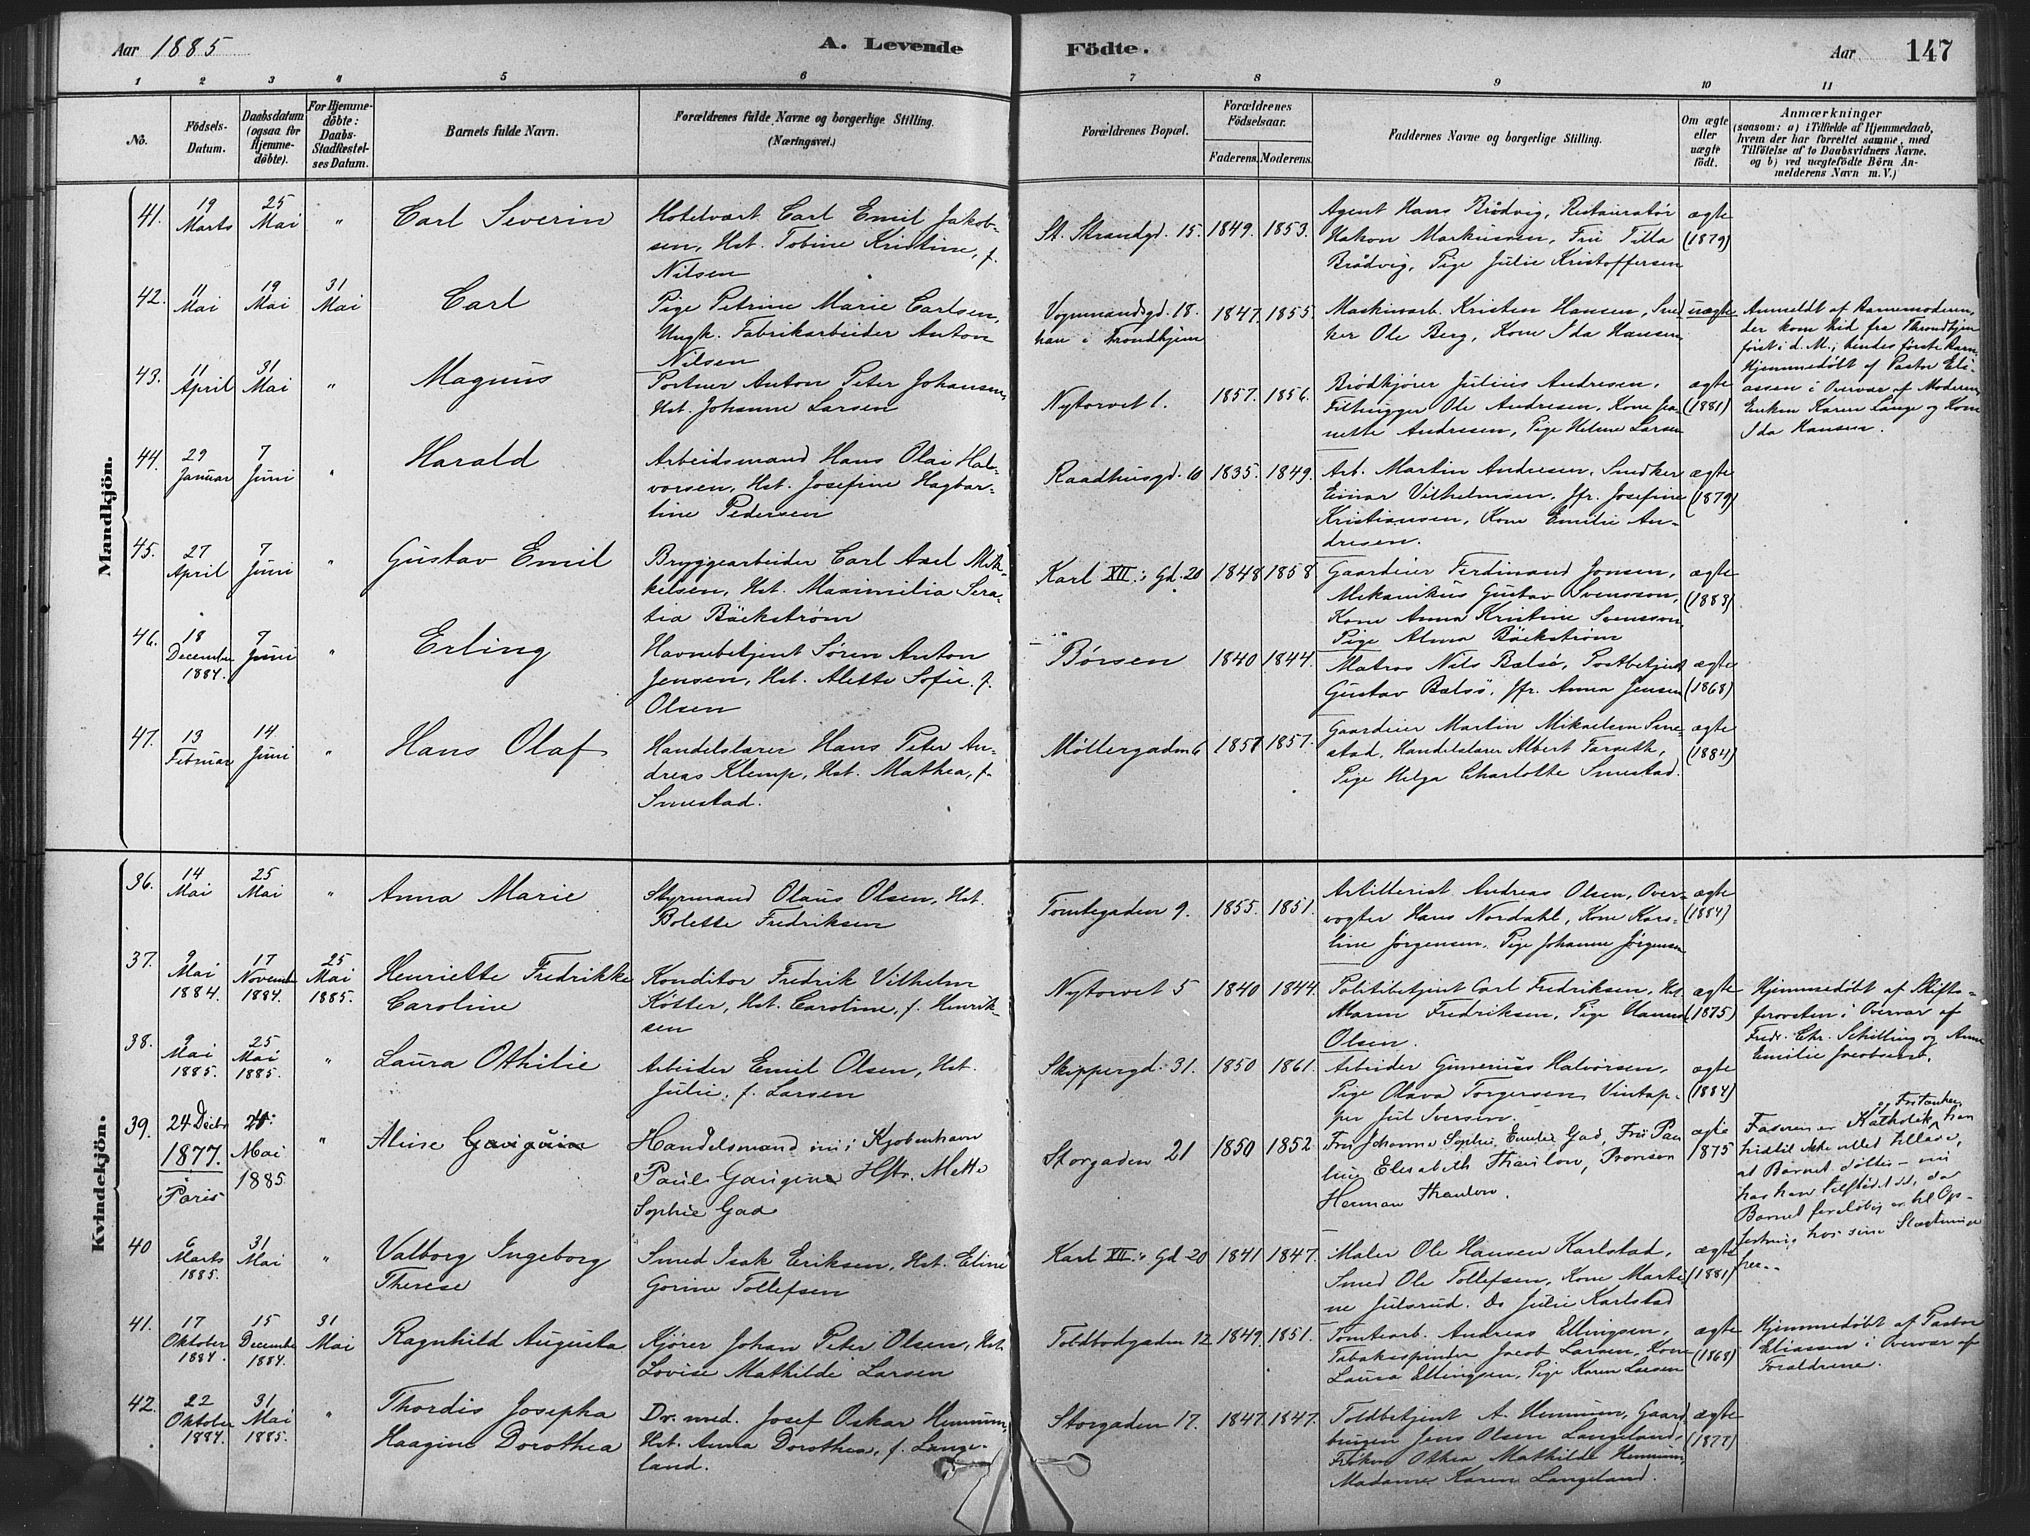 Aar 1885 A. Levende Födte. Aar 147
1 2 3 4 5 6 7 8 9 10 11
No.
Födsels-
Datum.
Daabsdatum
(ogsaa for
Hjemme-
döbte).
For Hjemme-
döbte:
Daabs-
Stadfæstel-
ses Datum.
Barnets fulde Navn.
Forældrenes fulde Navne og borgerlige Stilling.
(Næringsvei.)
Forældrenes Bopæl.
Forældrenes
Födselsaar.
Faderens. Moderens.
Faddernes Navne og borgerlige Stilling.
Om ægte
eller
uægte
födt.
Anmærkninger
(saasom: a) i Tilfælde af Hjemmedaab,
hvem der har forrettet samme, med
Tilföielse af to Daabsvidners Navne.
og b) ved uægtefödte Börn An-
melderens Navn m. V.)
Mandkjön.
41.
19
Marts
25
Mai
"
Carl Severin
Hotelvært Carl Emil Jakob-
sen, Hst. Tobine Kristine, f.
Nilsen
St. Strandgd. 15.
1849. 1853.
Agent Hans Brødvig, Restauratør
Hakon Markussen, Fru Tilla
Brødvig, Pige Julie Kristoffersen
ægte
(1879)
42.
11
Mai
19
Mai
31
Mai
Carl
Pige Petrine Marie Carlsen,
Ungk. Fabrikarbeider Anton
Nilsen
Vognmandsgd. 18.
han i Trondhjem
1847. 1855.
Maskinarb. Kristen Hansen, Sned
ker Ole Berg, Kone Ida Hansen
uægte
Anmeldt af Barnemoderen,
der kom hid fra Throndhjem
først i d. M.; hendes første Barn.
Hjemmedøbt af Pastor Eli-
assen i Overvær af Moderen,
Enken Karen Lange og Kone
Ida Hansen.
43.
11
April
31
Mai
"
Magnus
Portner Anton Peter Johansen,
Hst. Johanne Larsen
Nytorvet 1.
1857. 1856.
Brødkjører Julius Andresen,
Filhugger Ole Andresen, Kone Jea-
nette Andresen, Pige Helene Larsen
ægte
(1881)
44.
29
Januar
7
Juni
"
Harald
Arbeidsmand Hans Olai Hal-
vorsen, Hst. Josefine Hagbar-
tine Pedersen
Raadhusgd. 10
1835. 1849.
Arb. Martin Andresen, Snedker
Einar Vilhelmsen, Jfr. Josefine
Kristiansen, Kone Emilie An-
dresen.
ægte
(1879)
45.
27
April
7
Juni
"
Gustav Emil
Bryggearbeider Carl Axel Mik-
kelsen, Hst. Maximilia Sera-
tia Bäckstrøm
Karl XII.s Gd. 20
1848 1858
Gaardeier Ferdinand Jonsen,
Mekanikus Gustav Svensson,
Kone Anna Kristine Svensson
Pige Alma Bäckstrøm
ægte
(1883)
46.
18
December
1884.
7
Juni
"
Erling
Havnebetjent Søren Anton
Jensen, Hst. Alette Sofie, f.
Olsen
Børsen
1840 1844.
Matros Nils Bælsø, Postbetjent
Gustav Bælsø, Jfr. Anna Jensen
ægte
(1868)
47.
13
Februar
14
Juni
"
Hans Olaf
Handelslærer Hans Peter An-
dreas Klemp, Hst. Mathea, f.
Smestad.
Møllergaden 6
1857 1857.
Gaardeier Martin Mikaelsen Sme-
stad, Handelslærer Albert
Pige Helga Charlotte Smestad.
ægte
(1884)
Kvindekjön.
36.
14
Mai
25
Mai
"
Anna Marie
Styrmand Olaus Olsen, Hst.
Bolette Fredriksen
Tomtegaden 9.
1855. 1851.
Artillerist Andreas Olsen, Over-
vogter Hans Nordahl, Kone Karo-
line Jørgensen, Pige Johanne Jørgensen
ægte
(1884)
37.
9
Mai
1884.
17
Novembr
1884.
25
Mai
1885.
Henriette Fredrikke
Caroline
Konditor Fredrik Vilhelm
Köster, Hst. Caroline, f. Henrik-
sen
Nytorvet 5
1840 1844.
Politibetjent Carl Fredriksen, Hst.
Maren Fredriksen, Pige Hanna
Olsen.
ægte
(1875)
Hjemmedøbt af Stifts-
provsten i Overvær af
Fredr. Chr. Schilling og Anne
Emilie Jacobsen.
38.
9
Mai
1885.
25
Mai
1885.
"
Laura Othilie
Arbeider Emil Olsen, Hst.
Julie, f. Larsen
Skippergd. 31.
1850 1861.
Arbeider Gunerius Halvorsen,
Pige Olava Torgersen, Vintap-
per Jul Iversen.
ægte
(1884)
39.
24 Decbr
1877.
Paris
Mai
1885
"
Aline Gauguin
Handelsmand nu i Kjøbenhavn
Paul Gauguin Hstr. Mette
Sophie Gad
Storgaden 21
1850 1852
Fru Johanne Sophie Emilie Gad, Frk Pau
line Elisabeth Thaulow, Provisor
Herman Thaulow.
ægte
1875
Faderen er Katholik, han
hidtil ikke villed tillade,
at Barnet døbtes – nu
har han tilstedet det, da
Barnet foreløbig er til Op-
fostring hos sine Slægtninge
her.-
40
6
Marts
1885.
31
Mai
"
Valborg Ingeborg
Therese
Smed Isak Eriksen, Hst. Eline
Gorine Tollefsen
Karl XII.s Gd 20
1841 1847.
Maler Ole Hansen Karlstad,
Smed Ole Tollefsen, Kone Marti-
ne Julsrud. Do Julie Karlstad
ægte
(1881)
41.
17
Oktober
1884.
15
Decembr
1884.
31
Mai
Ragnhild Augusta
Kjører Johan Peter Olsen, Hst.
Lovise Mathilde Larsen
Toldbodgaden 12
1849. 1851.
Tomtearb. Andreas Ellingsen,
Tabaksspinder Jacob Larsen, Kone
Laura Ellingsen, Pige Karen Larsen
ægte
(1868)
Hjemmedøbt af Pastor
Eliassen i Overvær af
Forældrene.
42.
22
Oktober
1884.
31
Mai
1885.
"
Thordis Josepha
Haagine Dorothea
Dr. med. Josef Oskar Hennum,
Hst. Anna Dorothea, f. Lange-
land.
Storgaden 17.
1847. 1847.
Toldbetjent A. Hennum, Gaard
bruger Jens Olsen Langeland,
Frøken Othea Mathilde Hennum,
Madame Karen Langeland.
ægte
(1877)